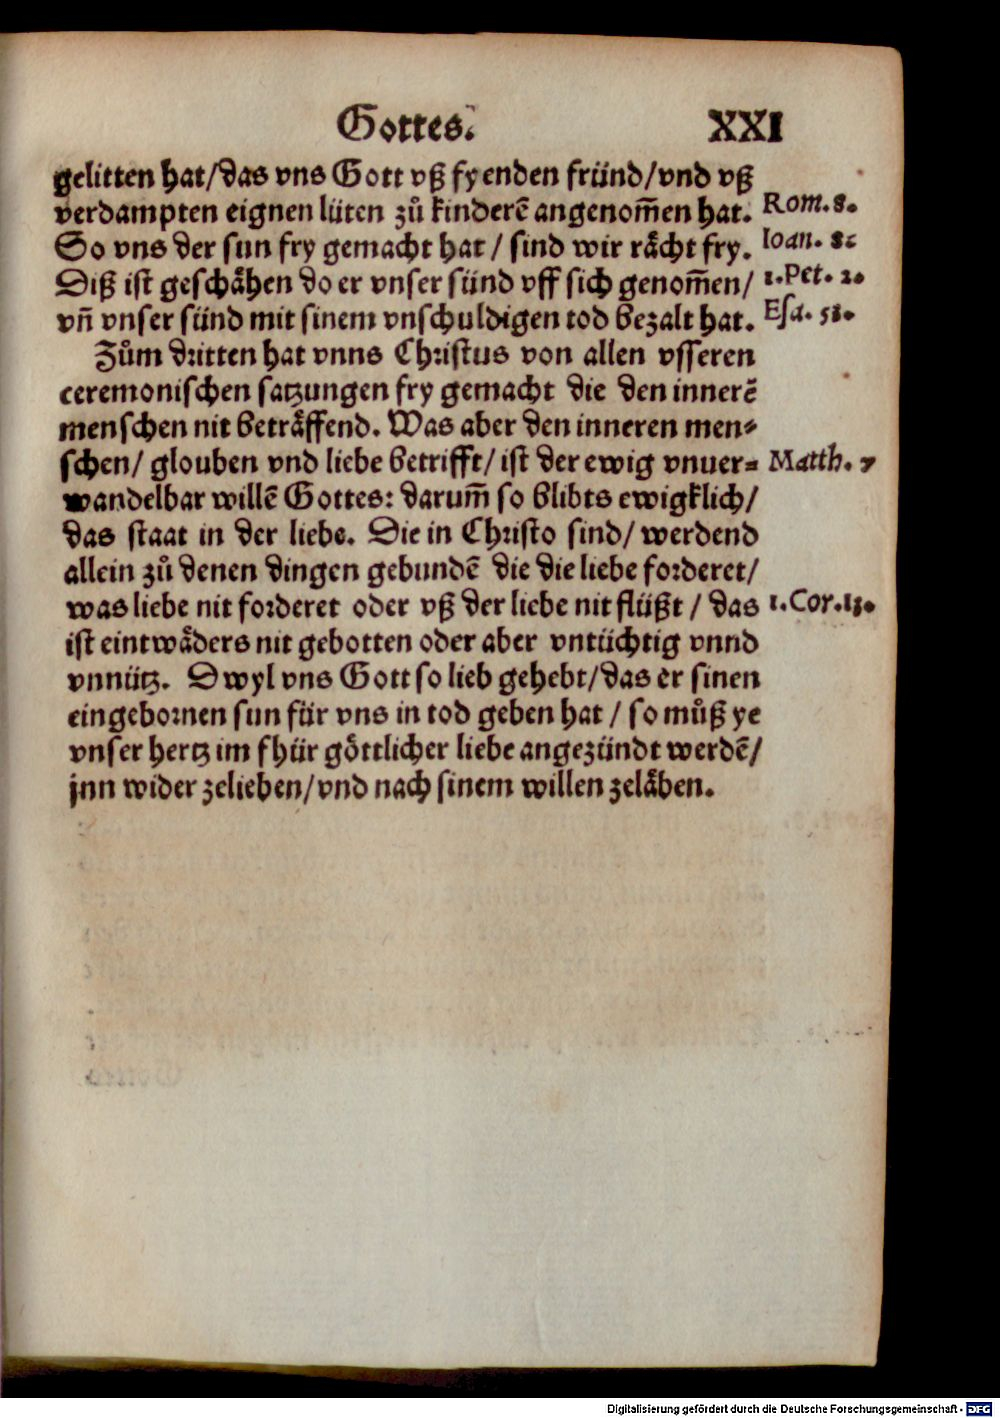 Gottes. XXI
gelitten hat/das vns Gott vß fyenden fründ/vnd vß
verdampten eignen lüten zů kinderē angenom̄en hat. Rom. 8.
So vns der sun fry gemacht hat / sind wir rächt fry. Ioan. 8.
Diß ist geschähen do er vnser sünd vff sich genom̄en/ 1. Pet. 2.
vn̄ vnser sünd mit sinem vnschuldigen tod bezalt hat. Esa. 53.
Zům dritten hat vnns Christus von allen vsseren
ceremonischen satzungen fry gemacht die den innerē
menschen nit beträffend. Was aber den inneren men⸗
schen/ glouben vnd liebe betrifft/ ist der ewig vnuer⸗ Matth. 7
wandelbar willē Gottes: darum̄ so blibts ewigklich/
das staat in der liebe. Die in Christo sind/ werdend
allein zů denen dingen gebundē die die liebe forderet/
was liebe nit forderet oder vß der liebe nit flüßt / das 1. Cor. 13.
ist eintwäders nit gebotten oder aber vntüchtig vnnd
vnnütz. Dwyl vns Gott so lieb gehebt/das er sinen
eingebornen sun für vns in tod geben hat / so můß ye
vnser hertz im fhür göttlicher liebe angezündt werdē/
jnn wider zelieben/vnd nach sinem willen zeläben.
Digitalisierung gefördert durch die Deutsche Forschungsgemeinschaft - DFG